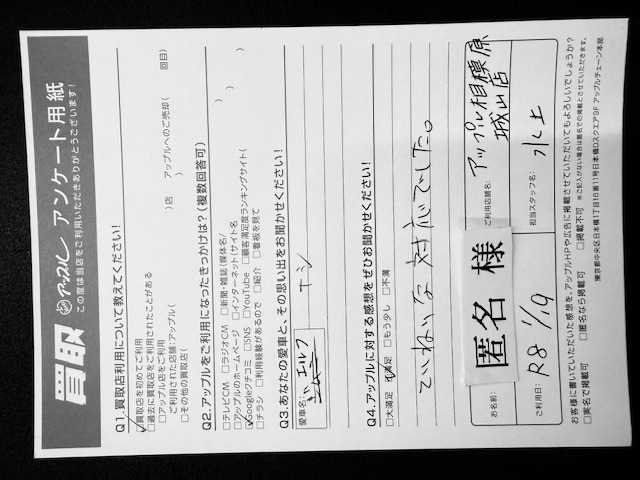 買取 アップル アンケート用紙
この度は当店をご利用いただきありがとうございます!
Q1.買取店利用について教えてください!
□買取店を初めてご利用
□過去に買取店をご利用されたことがある
□アップル店をご利用
ご利用された店舗:アップル( )店 アップルへのご売却( 回目)
□その他の買取店( )
Q2.アップルをご利用になったきっかけは?(複数回答可)
□テレビCM □ラジオCM □新聞・雑誌(媒体名/ )
□アップルのホームページ □インターネット(サイト名 )
□Googleクチコミ □SNS □YouTube □顧客満足度ランキングサイト( )
□チラシ □利用経験があるので □紹介 □看板を見て
Q3.あなたの愛車と、その思い出をお聞かせください!
愛車名: エルフ
ナシ
Q4.アップルに対する感想をぜひお聞かせください!
□大満足 □満足 □もう少し □不満
ていねいな対応でした。
お名前: 匿名 様
ご利用店舗名: アップル相模原城山店
ご利用日: R8 1/19
担当スタッフ名: 水上
お客様に書いていただいた感想を、アップルHPや広告に掲載させていただいてもよろしいでしょうか?
□実名で掲載可 □匿名なら掲載可 □掲載不可 ※ご記入がない場合は匿名での掲載とさせていただきます。
東京都中央区日本橋1丁目16番11号日本橋Dスクエア9F アップルチェーン本部